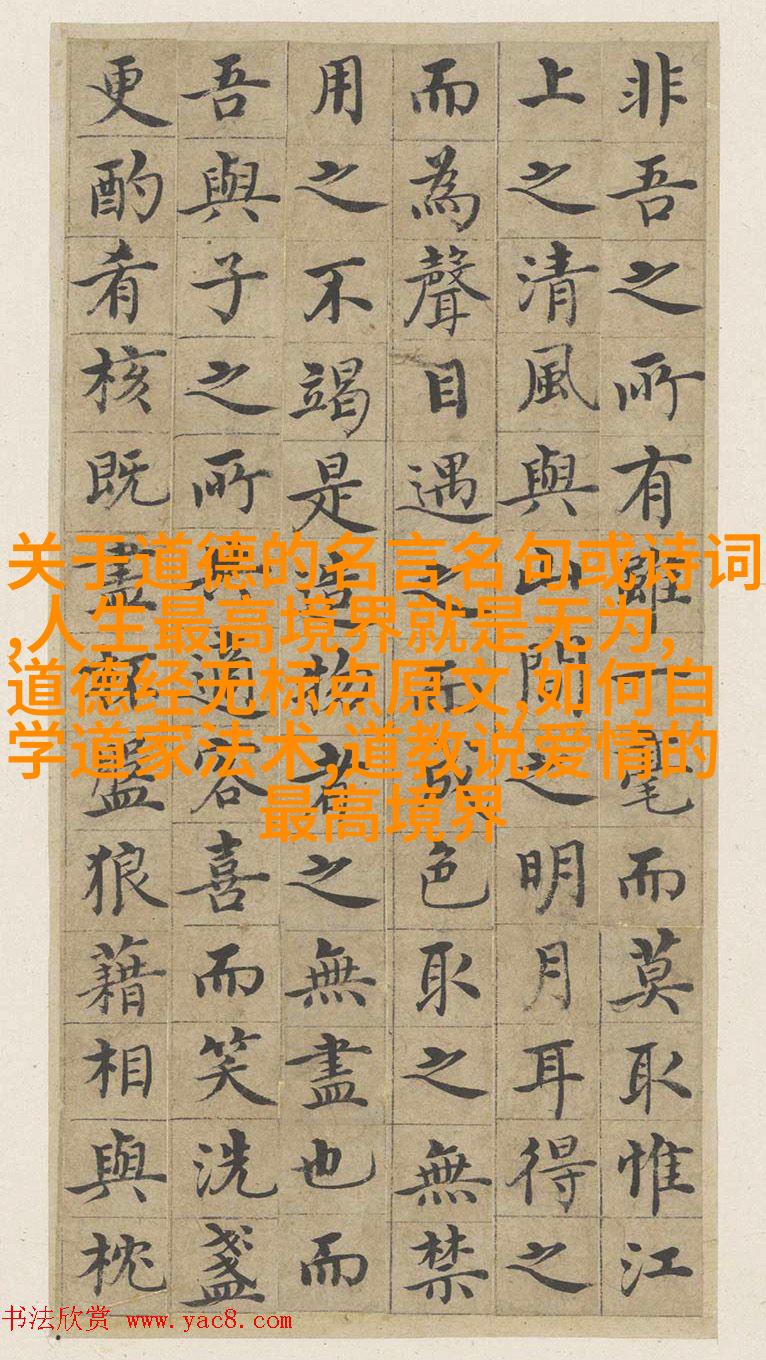 非吾之所有雖一毫而莫取惟江
上之清風與山間之明月耳得之
而為聲目遇之而成色取之無禁
用之不竭是造物者之無盡也而
吾與子之所共適客喜而笑洗盞
更酌肴核既盡杯盤狼藉相與枕
关于道德的名言名句或诗词
,人生最高境界就是无为,
道德经无标点原文,如何自
学道家法术,道教说爱情的
最高境界
书法欣赏 www.yac8.com